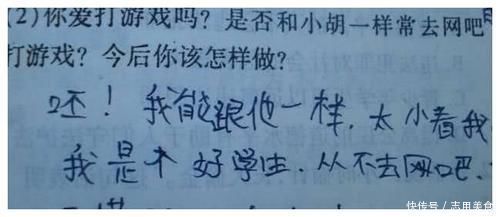 (2)你爱打游戏吗？是否和小胡一样常去网吧
打游戏？今后你该怎样做？
呸！我能跟他一样，太小看我
我是木好学生．从不去网吧．
快传号／志用美食